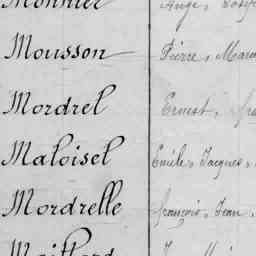 Monnier Ange,
Mousson Pierre, Marie
Mordrel Ernest,
Maloisel Emile, Jacques,
Mordrelle François, Jean,
Maillard